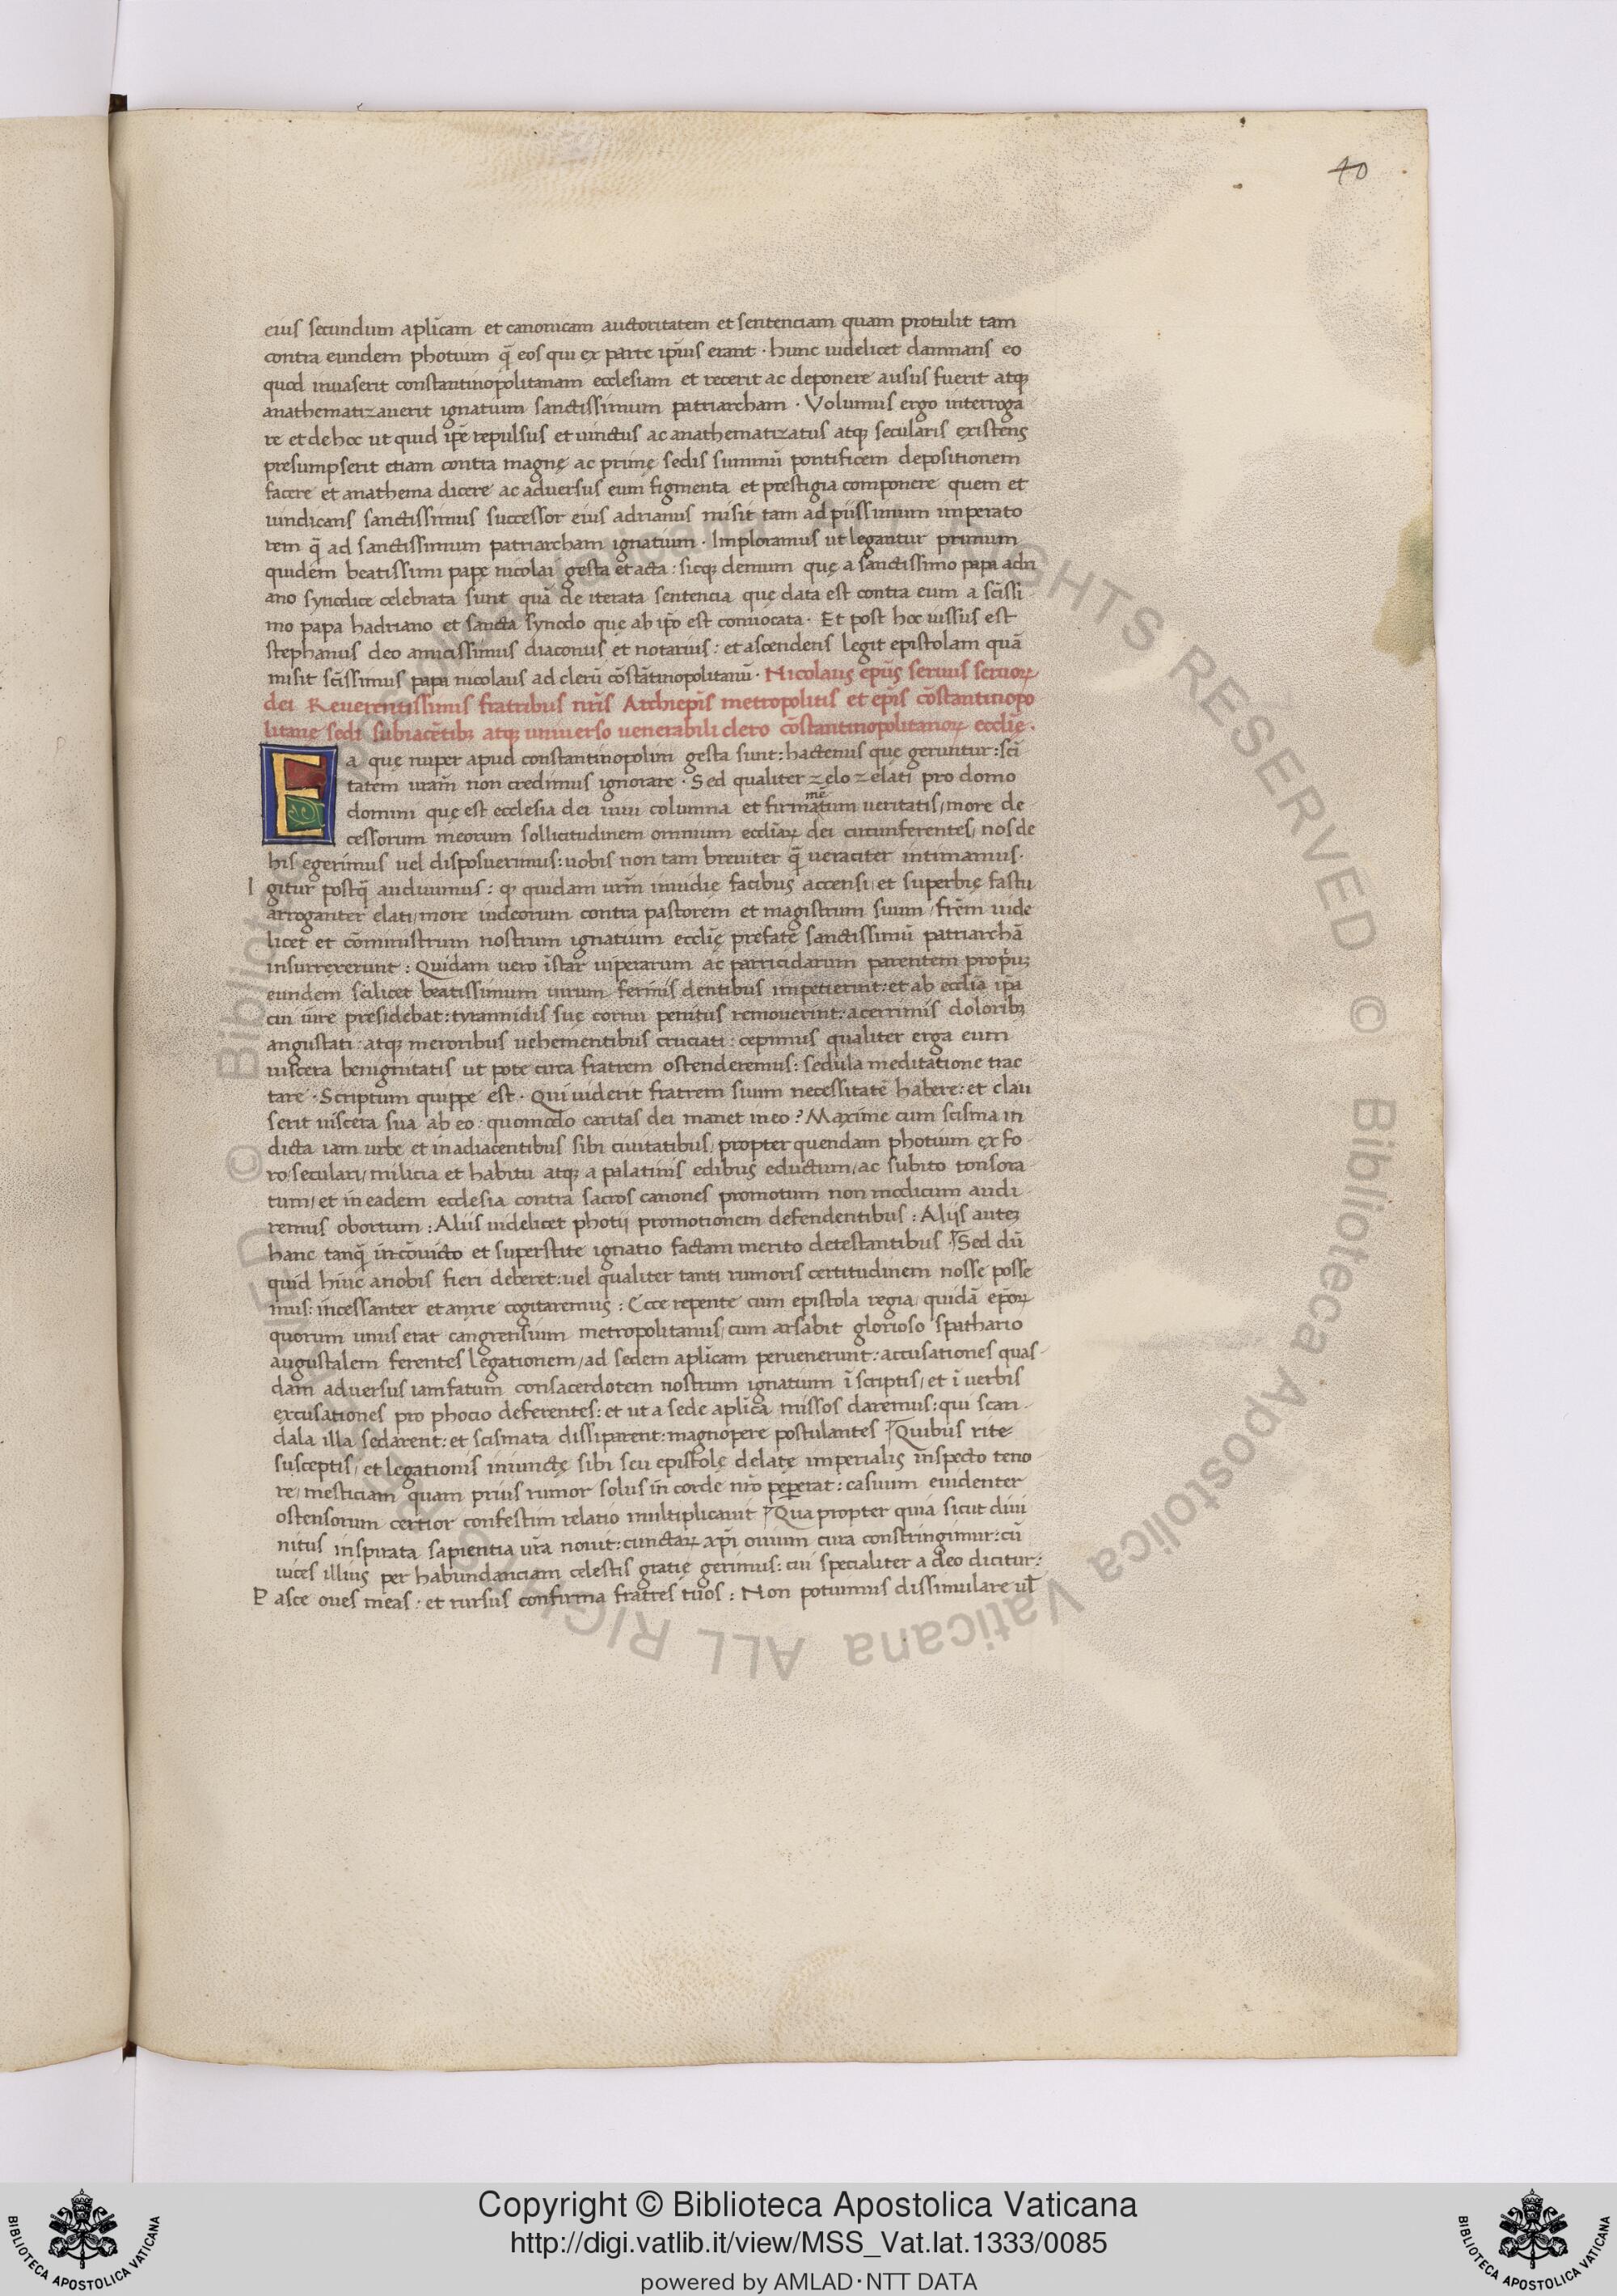 40
eius secundum aplicam et canonicam auctoritatem et sentenciam quam protulit tam
contra eundem photium q̃ eos qui ex parte ip̃ius erant · hunc uidelicet damnans eo
quod inuaserit constantinopolitanam ecclesiam et recerit ac deponere ausus fuerit atq;
anathematizauerit ignatium sanctissimum patriarcham · Volumus ergo interroga
re et de hoc ut quid ip̃e repulsus et uinctus ac anathematizatus atq; secularis existens
presumpserit etiam contra magnę ac primę sedis summũ pontificem depositionem
facere et anathema dicere ac aduersus eum figmenta et prestigia componere quem et
uindicans sanctissimus successor eius adrianus misit tam ad piissimum imperato
rem q̃ ad sanctissimum patriarcham ignatium · Imploramus ut legantur primum
quidem beatissimi papę nicolai gesta et acta : sicq; demum quę a sanctissimo papa adri
ano synodice celebrata sunt quã de iterata sentencia quę data est contra eum a sc̃issi
mo papa hadriano et sancta synodo quę ab ip̃o est conuocata · Et post hoc iussus est
stephanus deo amicissimus diaconus et notarius : et ascendens legit epistolam quã
misit sc̃issimus papa nicolaus ad clerũ cõstãtinopolitanũ · Nicolaus ep̃us seruus seruoꝝ
dei Reuerentissimis fratribus nr̃is Archiep̃is metropolitis et ep̃is cõstantinopo
litanę sedi subiacẽtibꝫ atq; uniuerso uenerabili clero cõstantinopolitanoꝝ ecclię ·
Ea quę nuper apud constantinopolim gesta sunt : hactenus quę geruntur : sci
tatem uram̃ non credimus ignorare · Sed qualiter zelo zelati pro domo
mẽ
domini quę est ecclesia dei uiui columna et firmatum ueritatis / more de
cessorum meorum sollicitudinem omnium eccliaꝝ dei circunferentes / nos de
his egerimus uel disposuerimus : uobis non tam breuiter q̃ ueraciter intimamus ·
I gitur postq̃ audiuimus : ꝙ quidam urm̃ inuidię facibus accensi / et superbię fastu
arroganter elati / more iudeorum contra pastorem et magistrum suum / frẽm uide
licet et cõministrum nostrum ignatium ecclię prefatę sanctissimũ patriarchã
insurrexerunt : Quidam uero ĩstar uiperarum ac parricidarum parentem propriuꝫ
eundem scilicet beatissimum uirum ferinis dentibus impetierint : et ab ecclia ip̃a
cui iure presidebat : tyrannidis suę cornu penitus remouerint : acerrimis doloribꝫ
angustati : atq; meroribus uehementibus cruciati : cepimus qualiter erga eum
uiscera benignitatis ut pote circa fratrem ostenderemus : sedula meditatione trac
tare · Scriptum quippe est · Qui uiderit fratrem suum necessitatẽ habere : et clau
serit uiscera sua ab eo : quomodo caritas dei manet in eo ? Maxime cum scisma in
dicta iam urbe et in adiacentibus sibi ciuitatibus / propter quendam photium ex fo
ro seculari / milicia et habitu atq; a palatinis edibus eductum / ac subito tonsora
tum / et in eadem ecclesia contra sacros canones promotum non modicum audi
remus obortum : Aliis uidelicet photij promotionem defendentibus : Alijs auteꝫ
hanc tanq̃ in cõuicto et superstite ignatio factam merito detestantibus · Sed dũ
quid hinc a nobis fieri deberet : uel qualiter tanti rumoris certitudinem nosse posse
mus : incessanter et anxie cogitaremus : Ecce repente cum epistola regia / quidã ep̃oꝝ
quorum unus erat cangrensium metropolitanus / cum arsabit glorioso spathario
augustalem ferentes legationem / ad sedem aplicam peruenerunt : accusationes quas
dam aduersus iamfatum consacerdotem nostrum ignatium ĩ scriptis / et ĩ uerbis
excusationes pro phocio deferentes : et ut a sede aplica missos daremus : qui scan
dala illa sedarent : et scismata dissiparent : magnopere postulantes · Quibus rite
susceptis / et legationis iniunctę sibi seu epistolę delatę imperialis inspecto teno
re / mesticiam quam prius rumor solus in corde nr̃o pepererat : casuum euidenter
ostensorum certior confestim relatio multiplicauit · Qua propter quia sicut diui
nitus inspirata sapientia ur̃a nouit : cunctaꝝ xp̃i ouium cura constringimur : cũ
uices illius per habundanciam celestis gratię gerimus : cui specialiter a deo dicitur :
P asce oues meas : et rursus confirma fratres tuos : Non potuimus dissimulare ul̃
Copyright © Biblioteca Apostolica Vaticana
http://digi.vatlib.it/view/MSS_Vat.lat.1333/0085
powered by AMLAD·NTT DATA
BIBLIOTECA APOSTOLICA VATICANA
BIBLIOTECA APOSTOLICA VATICANA
© Biblioteca Apostolica Vaticana ALL RIGHTS RESERVED © Biblioteca Apostolica Vaticana ALL RIGHTS RESERVED